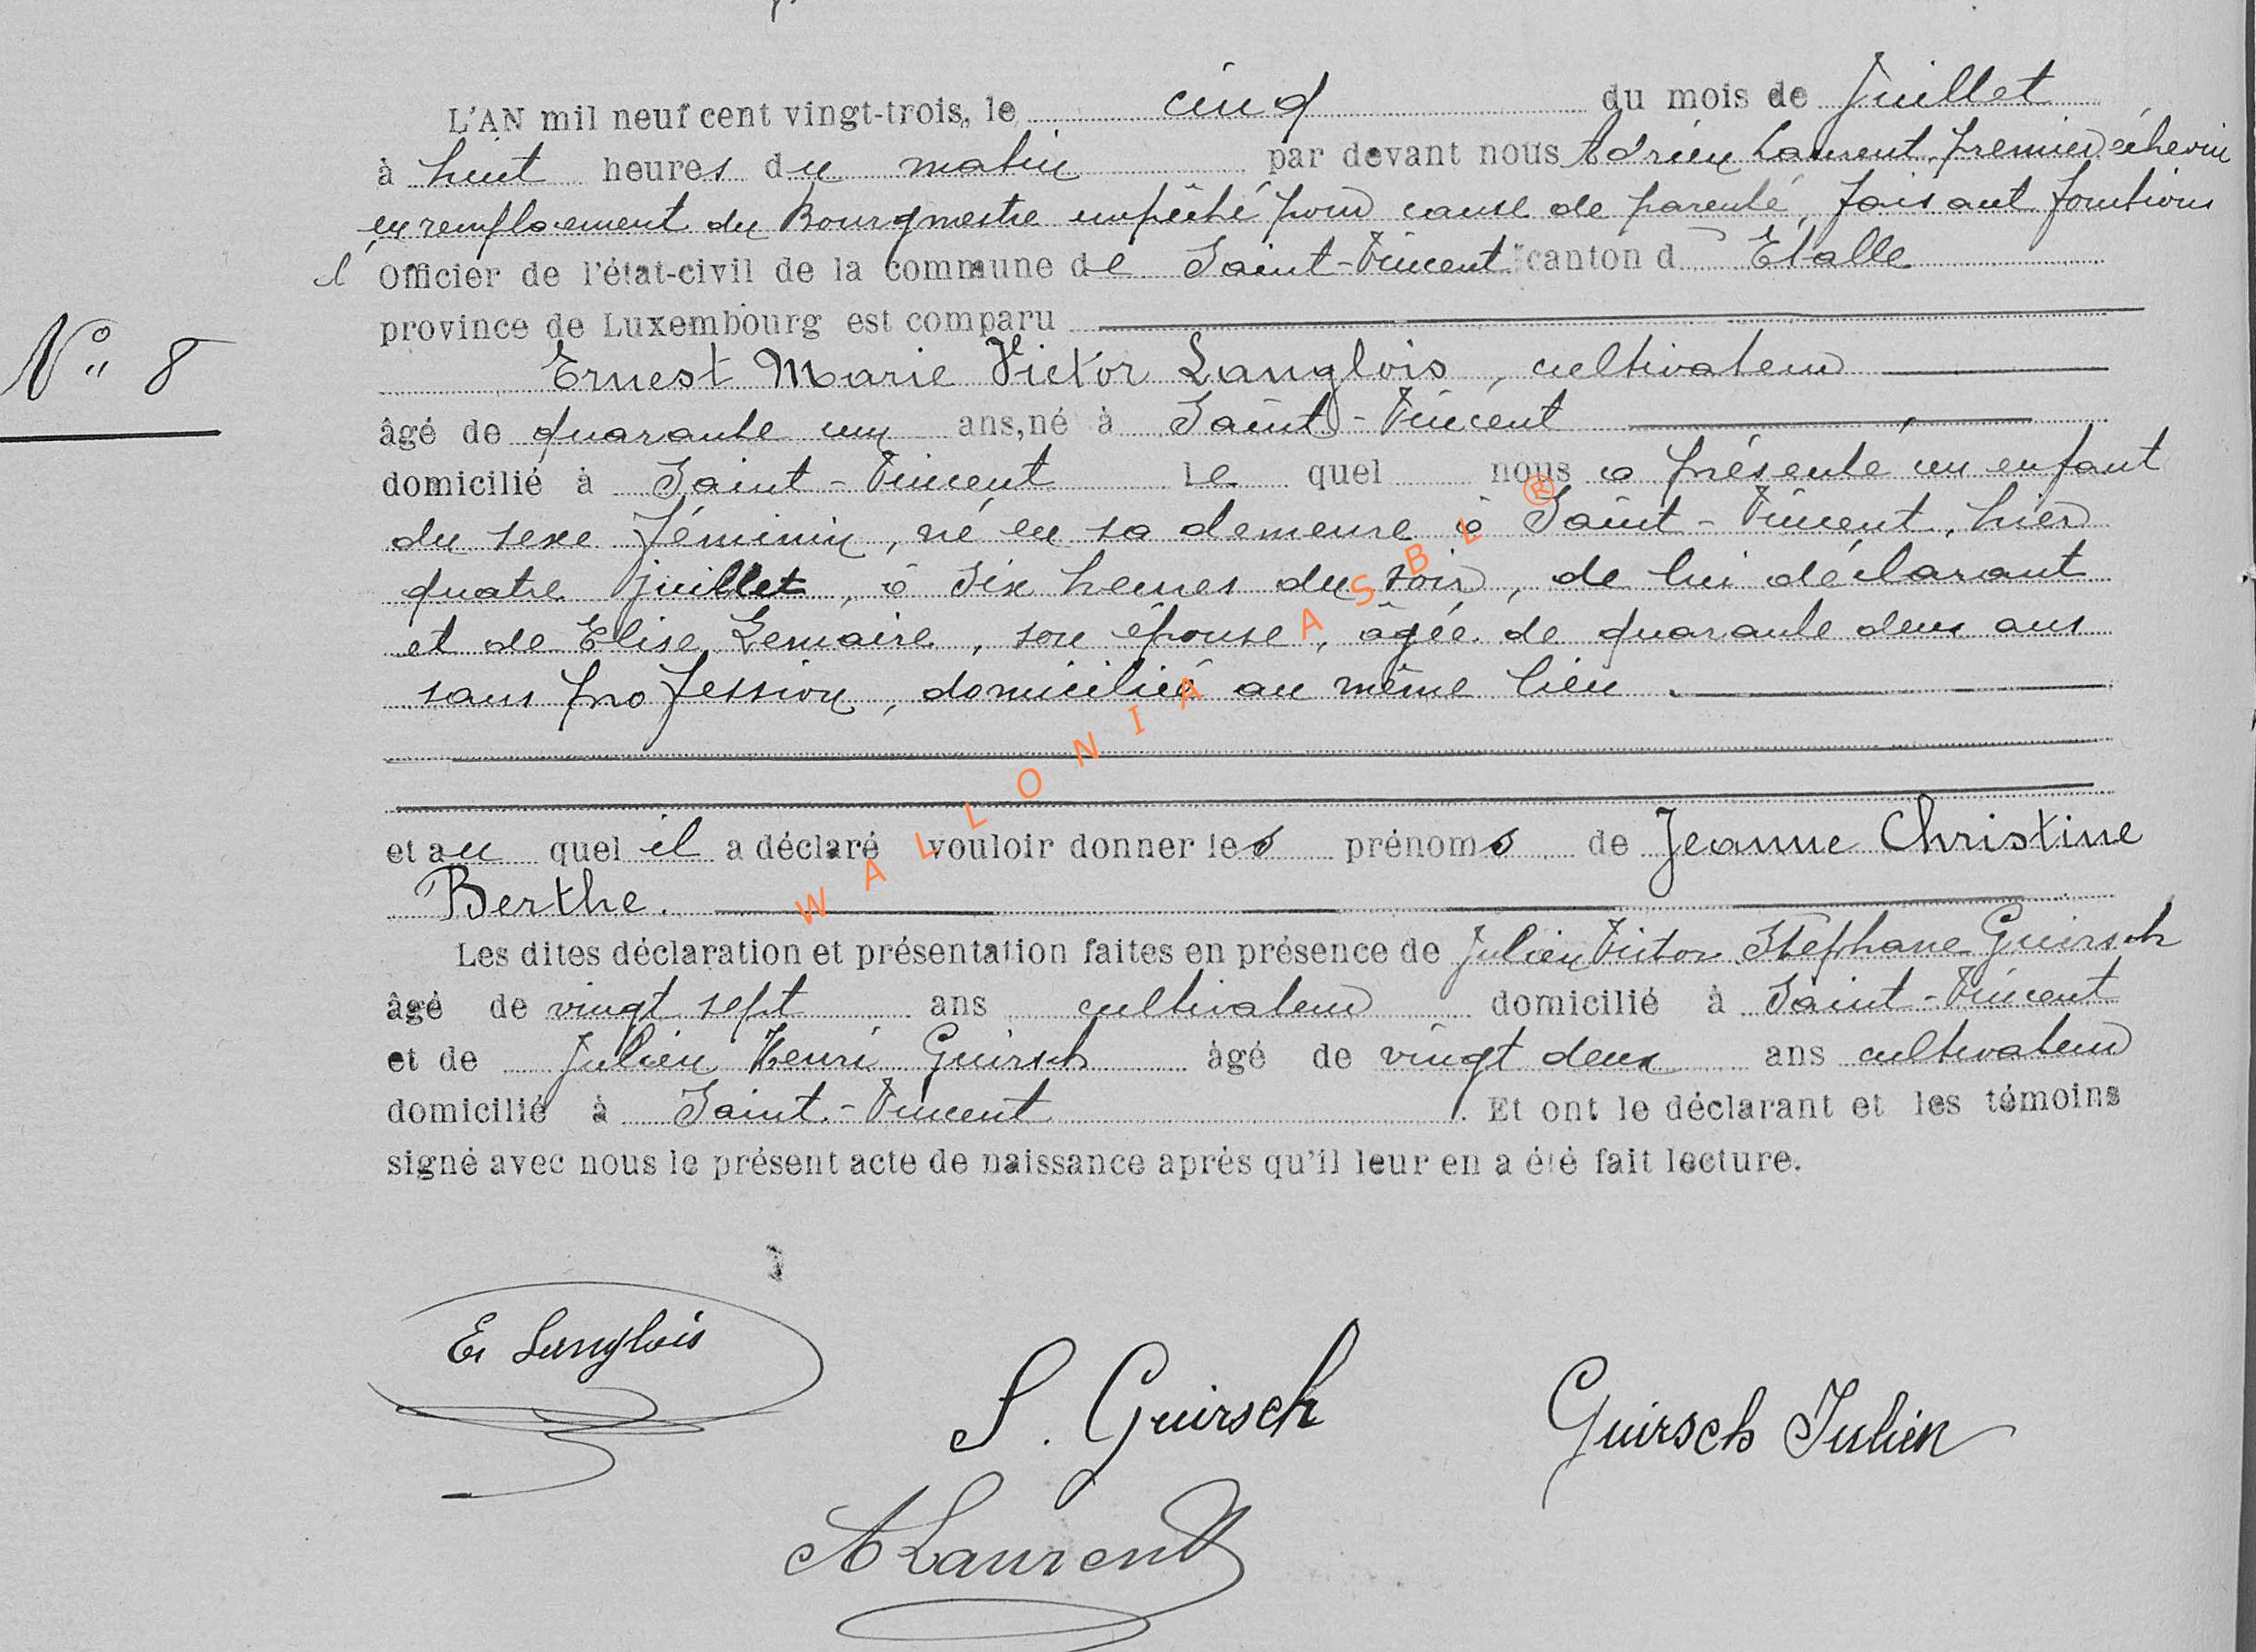 L'AN mil neuf cent vingt-trois, le cinq du mois de Juillet
à huit heures du matin par devant nous Adrien Laurent, premier échevin
en remplacement du Bourgmestre empêché pour cause de parenté, faisant fonctions
d'Officier de l'état-civil de la commune de Saint-Vincent canton d'Etalle
province de Luxembourg est comparu
N° 8
Ernest Marie Victor Langlois, cultivateur
âgé de quarante un ans, né à Saint-Vincent
domicilié à Saint-Vincent lequel nous a présenté un enfant
du sexe féminin, né en sa demeure à Saint-Vincent, hier
quatre juillet, à six heures du soir, de lui déclarant
et de Elise Lemaire, son épouse, âgée de quarante deux ans
sans profession, domiciliée au même lieu.
et au quel il a déclaré vouloir donner les prénoms de Jeanne Christine
Berthe.
Les dites déclaration et présentation faites en présence de Julien Victor Stéphane Guirsch
âgé de vingt sept ans cultivateur domicilié à Saint-Vincent
et de Julien Henri Guirsch âgé de vingt deux ans cultivateur
domicilié à Saint-Vincent. Et ont le déclarant et les témoins
signé avec nous le présent acte de naissance après qu'il leur en a été fait lecture.
E. Langlois
S. Guirsch
Guirsch Julien
A Laurent
WALLONIA ASBL ®